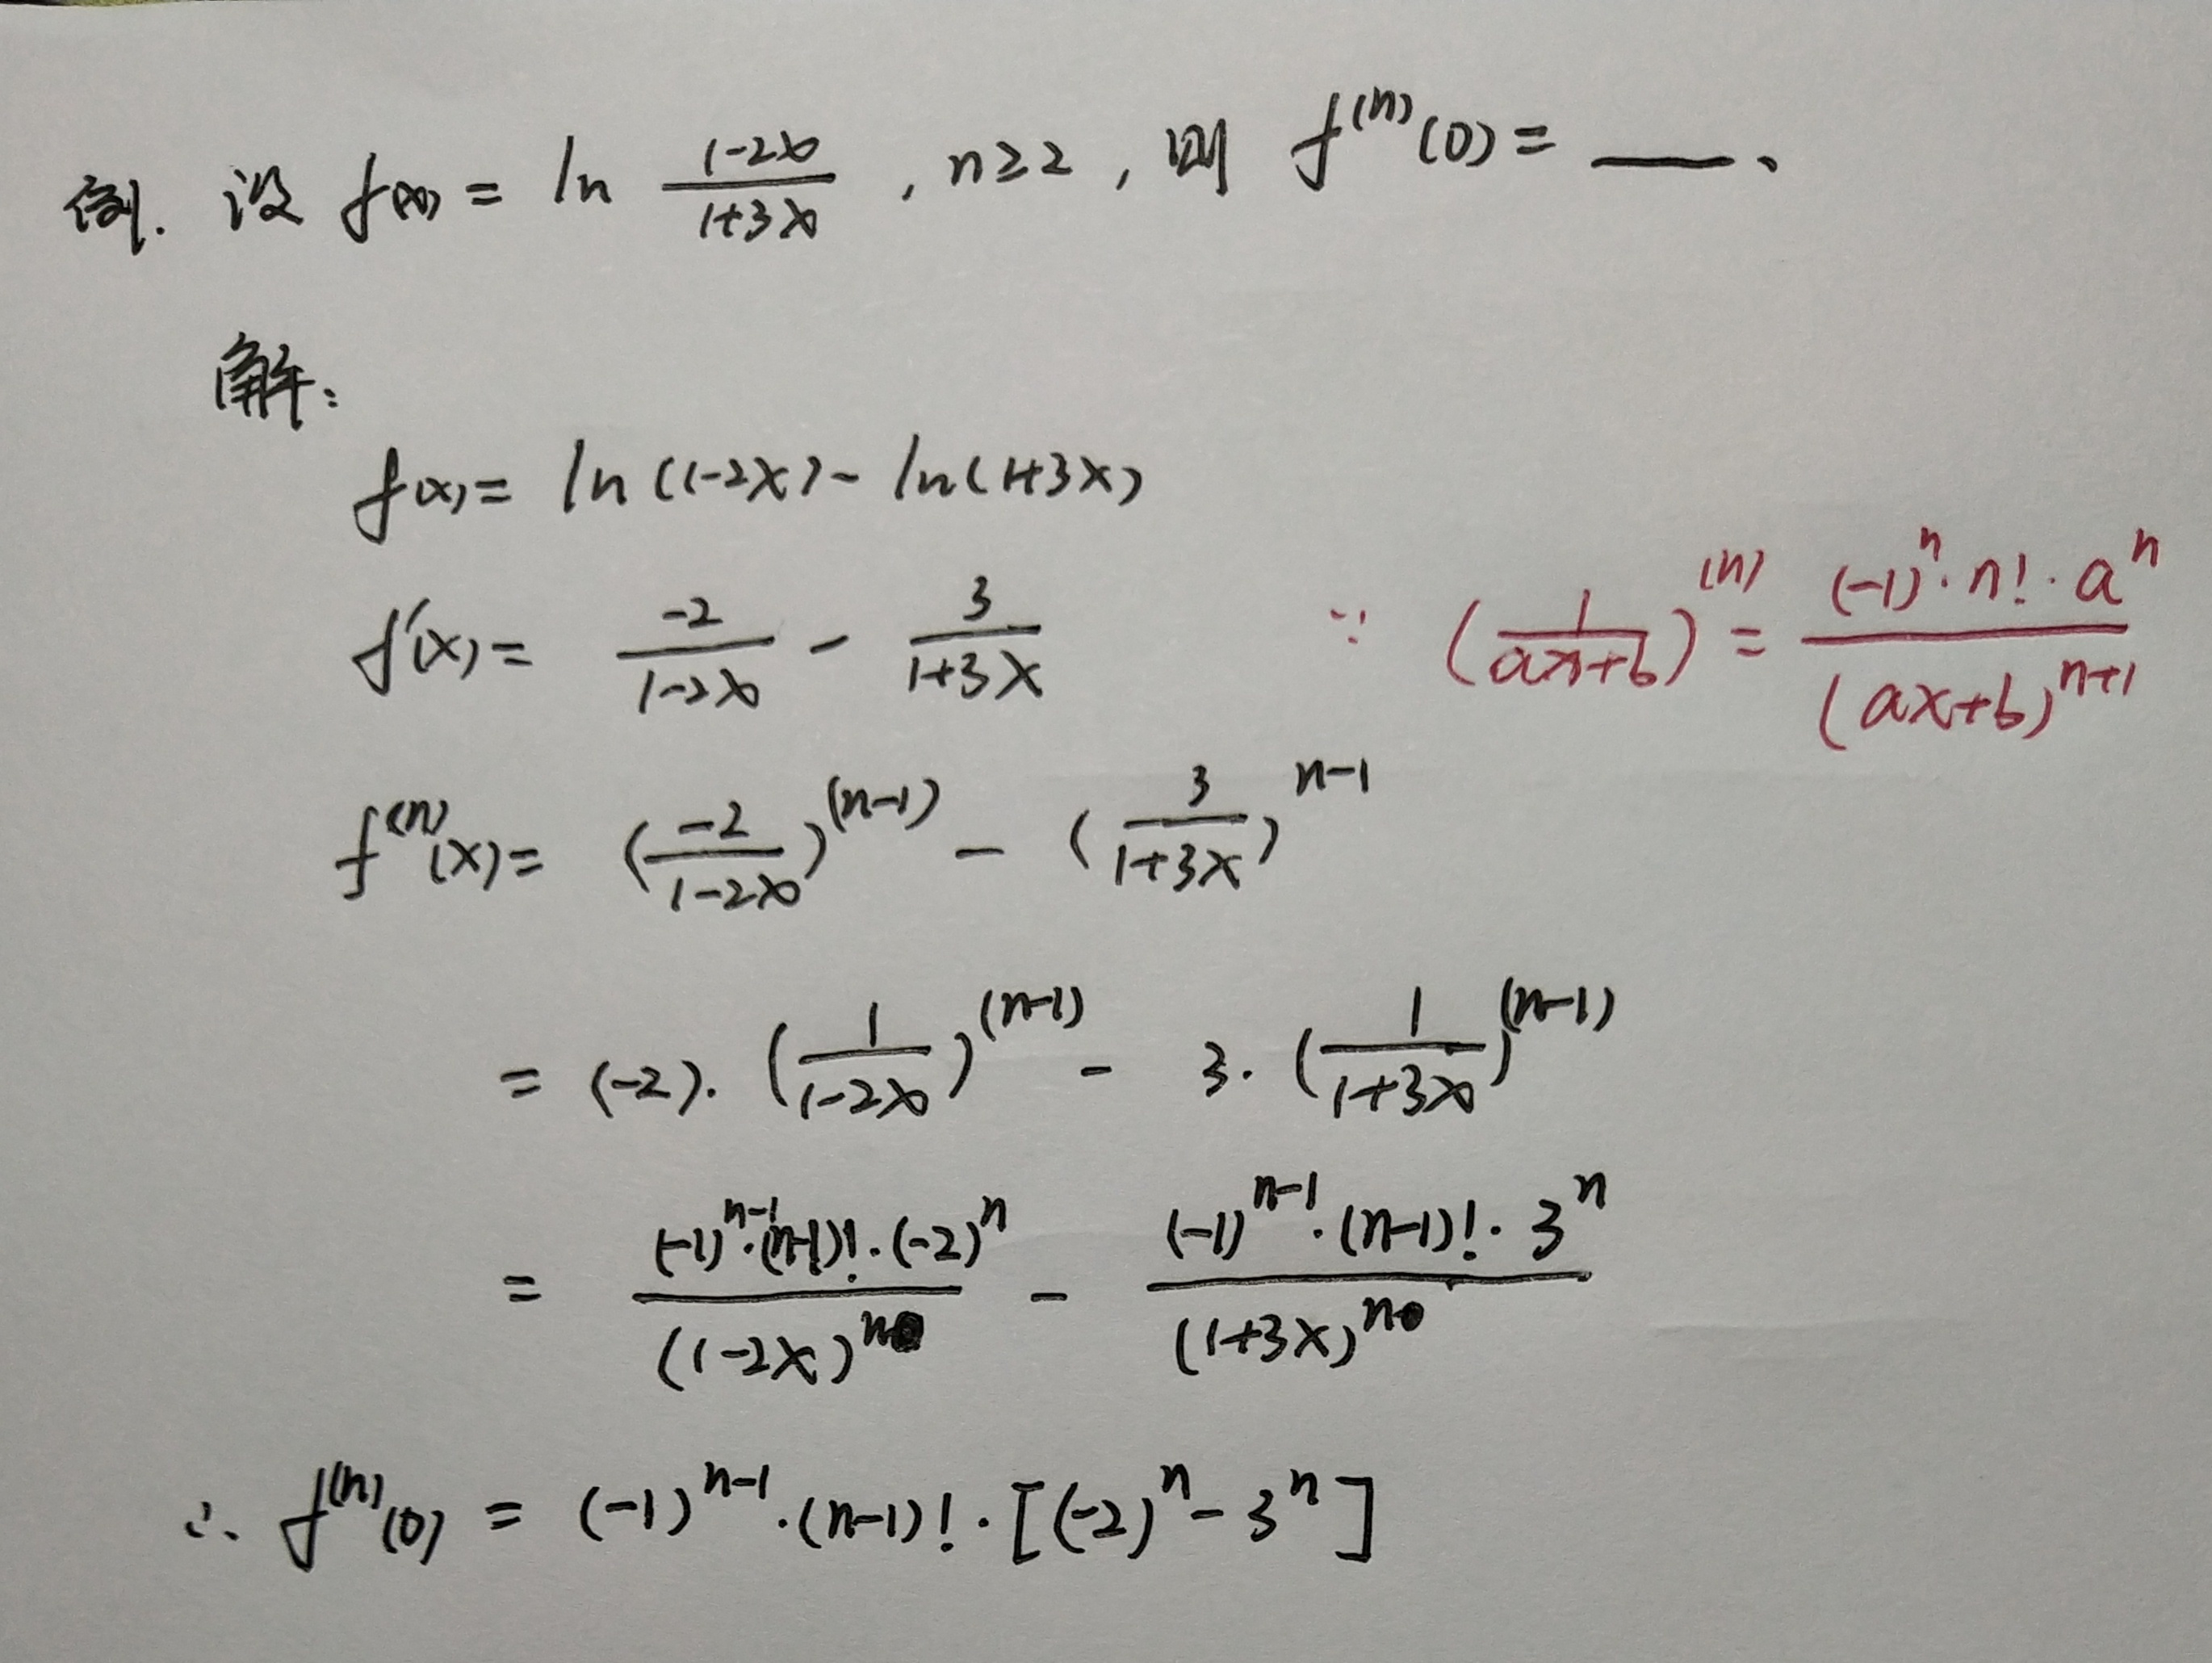 例. 设 f(x) = ln (1-2x)/(1+3x) , n≥2 , 则 f^(n)(0) = ___ 、
解:
f(x) = ln(1-2x) - ln(1+3x)
f'(x) = -2/(1-2x) - 3/(1+3x)
∵ (1/(ax+b))^(n) = ((-1)^n · n! · a^n)/(ax+b)^(n+1)
f^(n)(x) = (-2/(1-2x))^(n-1) - (3/(1+3x))^n-1
= (-2) · (1/(1-2x))^(n-1) - 3 · (1/(1+3x))^(n-1)
= ((-1)^(n-1) · (n-1)! · (-2)^n)/(1-2x)^n - ((-1)^(n-1) · (n-1)! · 3^n)/(1+3x)^n
∴ f^(n)(0) = (-1)^(n-1) · (n-1)! · [(-2)^n - 3^n]